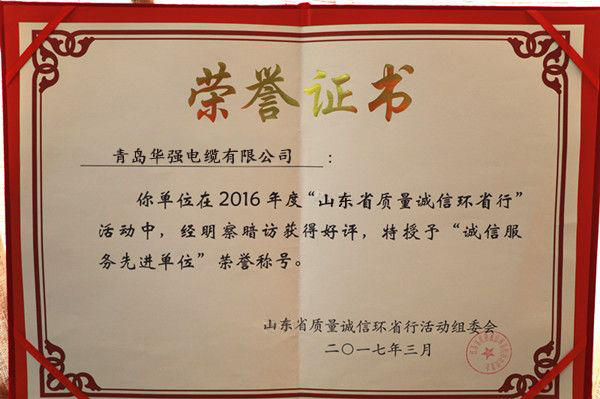 荣誉证书
青岛华强电缆有限公司：
你单位在2016年度“山东省质量诚信环省行”
活动中，经明察暗访获得好评，特授予“诚信服
务先进单位”荣誉称号。
山东省质量诚信环省行活动组委会
二〇一七年三月